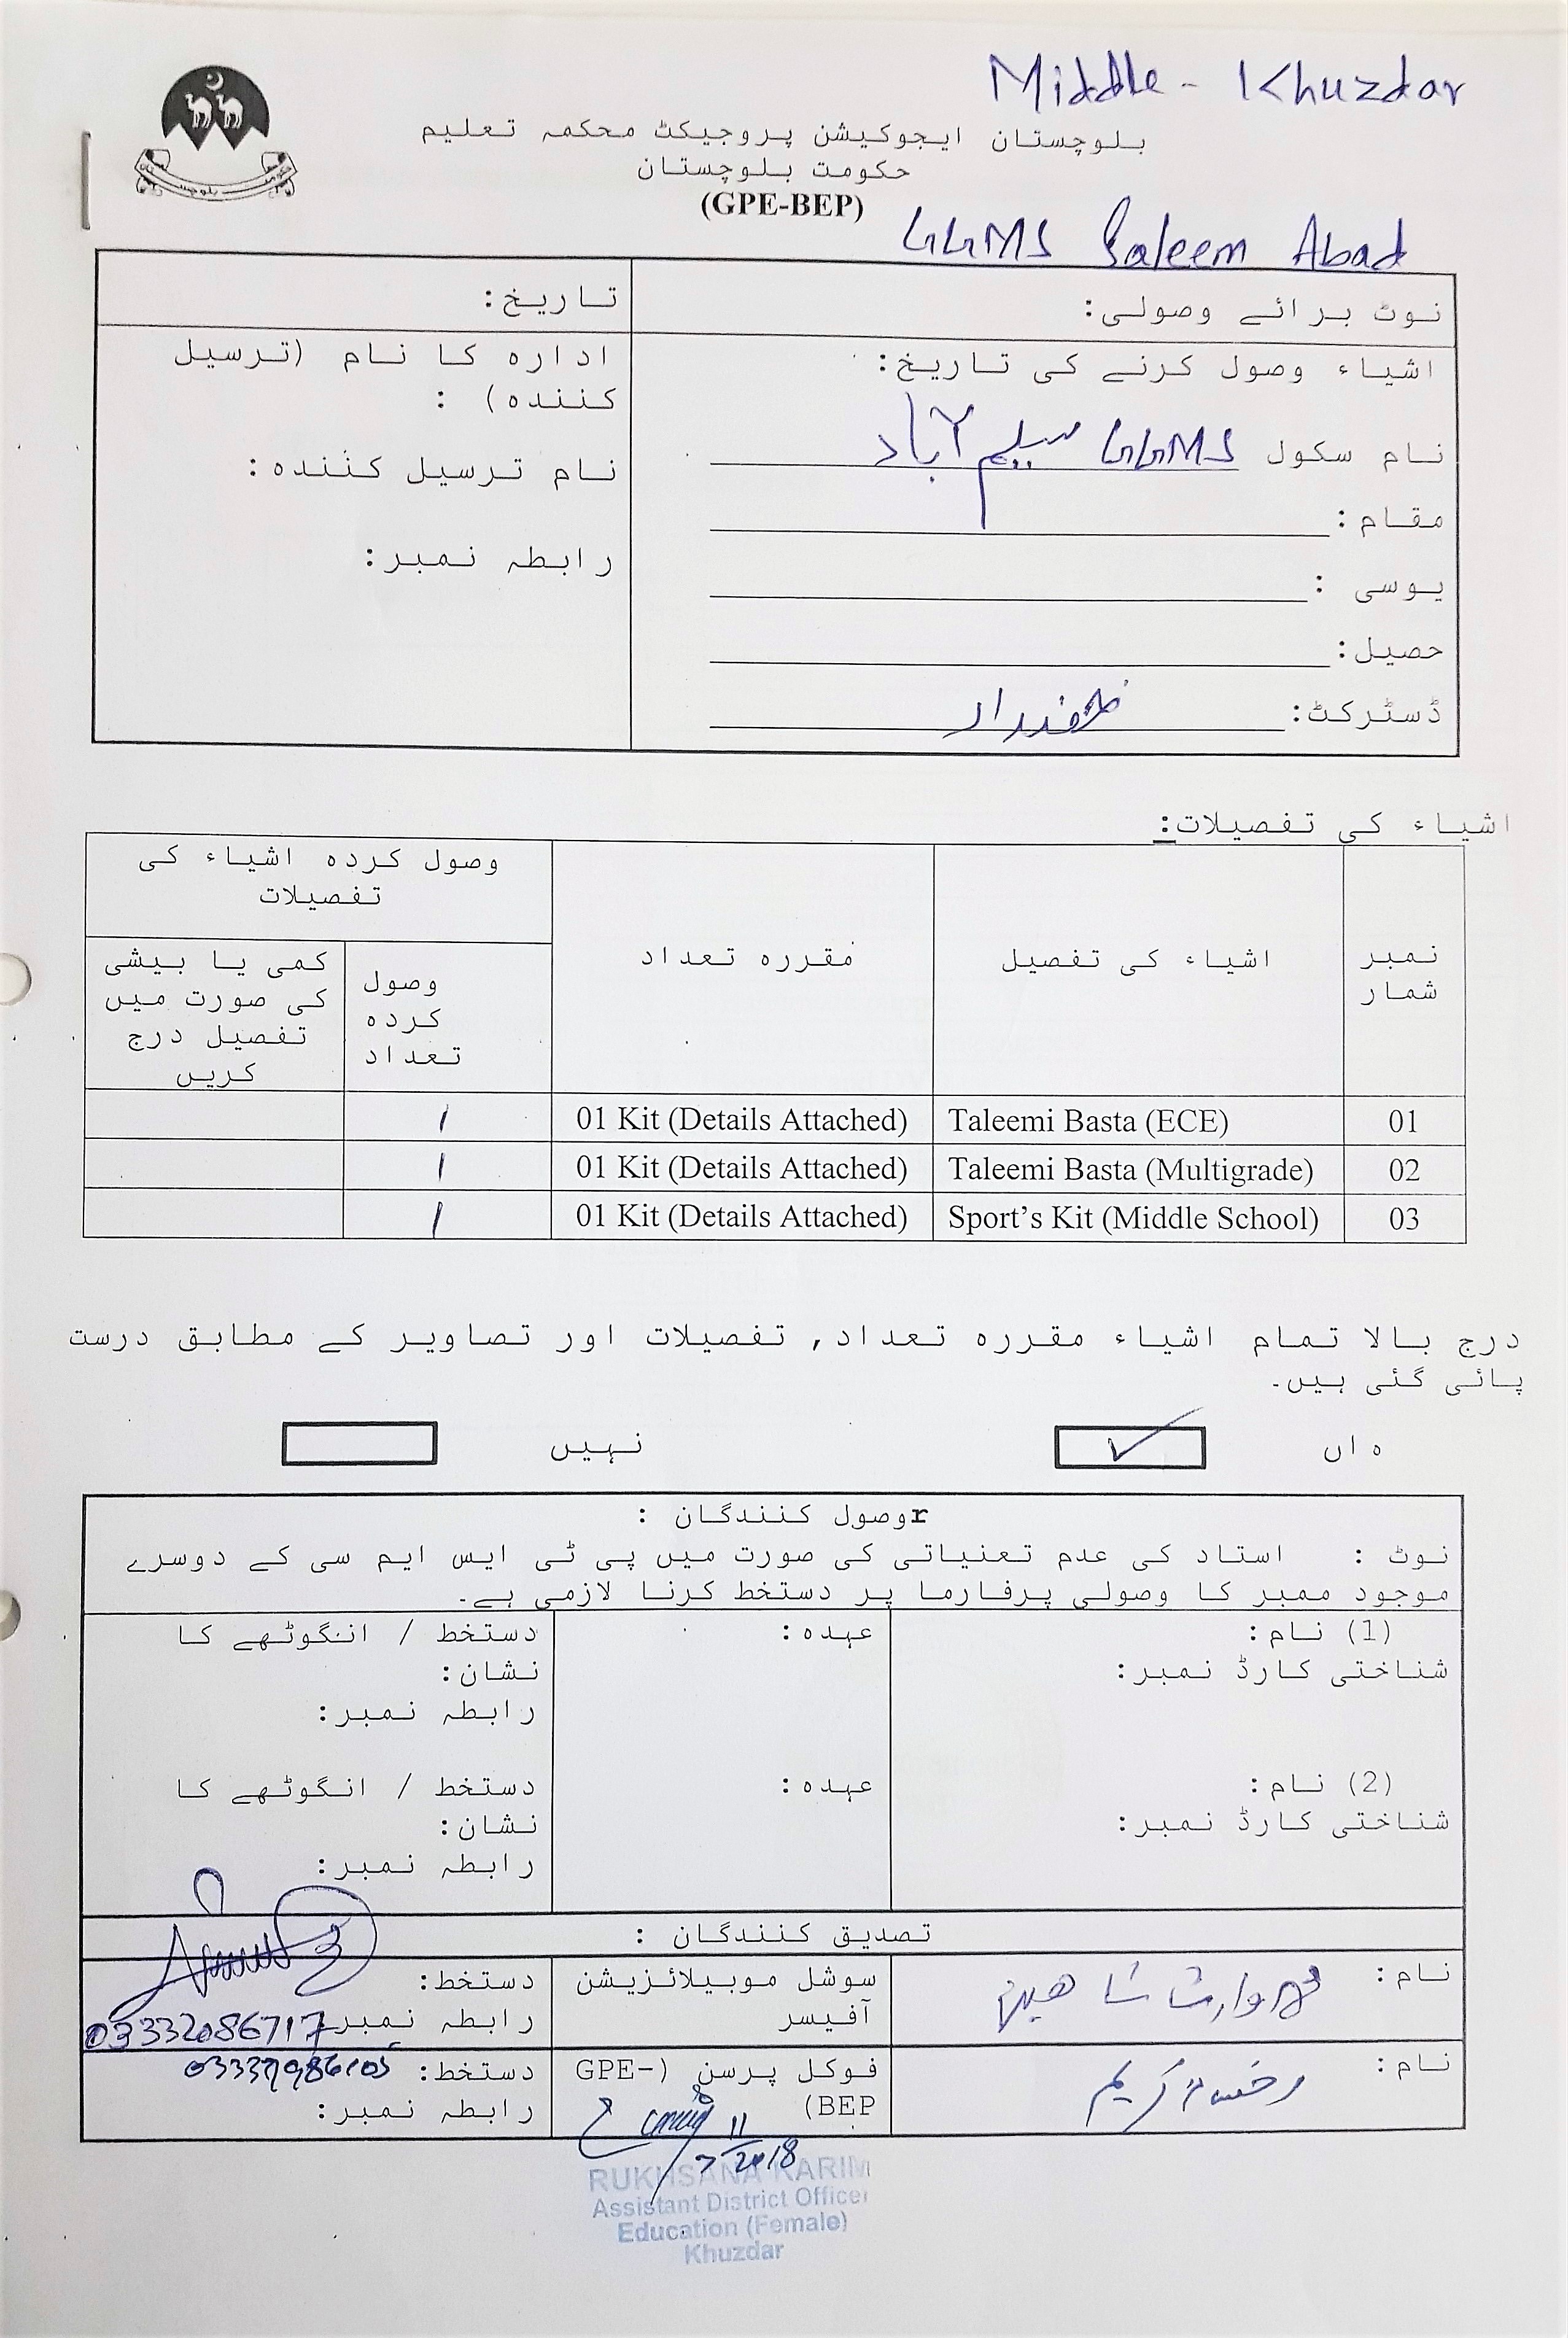 Middle - Khuzdar
بلوچستان ایجوکیشن پروجیکٹ محکمہ تعلیم
حکومت بلوچستان
(GPE-BEP)
GGMS Saleem Abad
نوٹ برائے وصولی:
تاریخ:
اشیاء وصول کرنے کی تاریخ:
نام سکول GGMS سلیم آباد
مقام:
یوسی :
حصیل:
ڈسٹرکٹ: خضدار
ادارہ کا نام (ترسیل
کنندہ) :
نام ترسیل کنندہ:
رابطہ نمبر:
اشیاء کی تفصیلات:
نمبر شمار
اشیاء کی تفصیل
مقررہ تعداد
وصول کردہ اشیاء کی
تفصیلات
وصول
کردہ
تعداد
کمی یا بیشی
کی صورت میں
تفصیل درج
کریں
01 Taleemi Basta (ECE) 01 Kit (Details Attached) 1
02 Taleemi Basta (Multigrade) 01 Kit (Details Attached) 1
03 Sport’s Kit (Middle School) 01 Kit (Details Attached) 1
درج بالا تمام اشیاء مقررہ تعداد, تفصیلات اور تصاویر کے مطابق درست
پائی گئی ہیں۔
ہاں ✓ نہیں
rوصول کنندگان :
نوٹ : استاد کی عدم تعنیاتی کی صورت میں پی ٹی ایس ایم سی کے دوسرے
موجود ممبر کا وصولی پرفارما پر دستخط کرنا لازمی ہے۔
(1) نام:
شناختی کارڈ نمبر:
عہدہ:
دستخط / انگوٹھے کا
نشان:
رابطہ نمبر:
(2) نام:
شناختی کارڈ نمبر:
عہدہ:
دستخط / انگوٹھے کا
نشان:
رابطہ نمبر:
تصدیق کنندگان :
نام: وارث شاھین
سوشل موبیلائزیشن
آفیسر
دستخط:
رابطہ نمبر 03332086717
نام: رخسانہ کریم
فوکل پرسن (GPE-
BEP)
دستخط:
رابطہ نمبر:
11/7/2018
RUKHSANA KARIM
Assistant District Officer
Education (Female)
Khuzdar